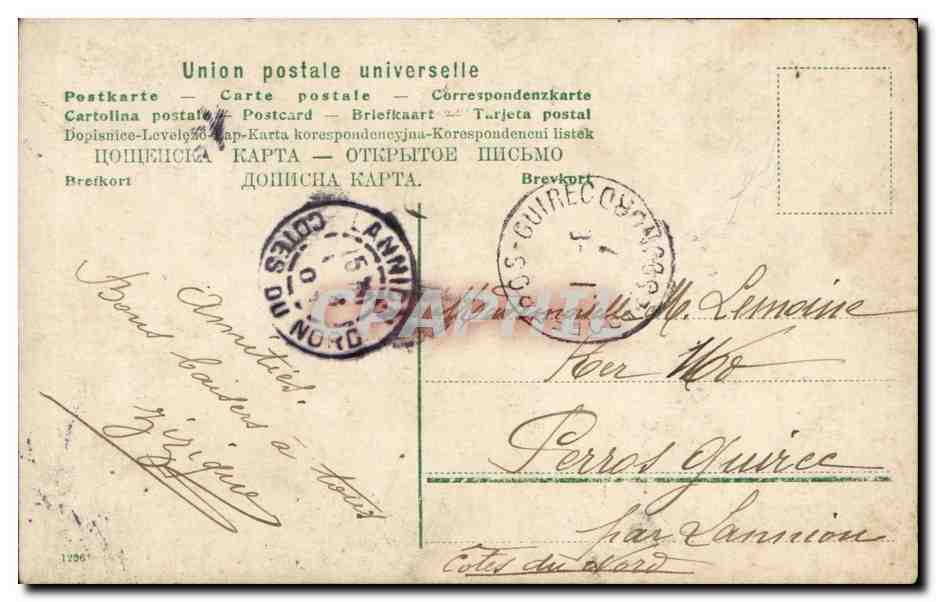 Union postale universelle
Postkarte — Carte postale — Correspondenzkarte
Cartolina postale — Postcard — Briefkaart — Tarjeta postal
Dopisnice-Levelező-Lap-Karta korespondencyjna-Korespondencni listek
ЦОЩЕНСКА КАРТА — ОТКРЫТОЕ ПИСЬМО
Brefkort ДОПИСНА КАРТА. Brevkort
LANNION
COTES DU NORD
PERROS-GUIREC
COTES DU NORD
CPAPHIL
Amitiés
Bons baisers à tous
Zizique
Mademoiselle M. Lemoine
Ker
Perros Guirec
par Lannion
Côtes du Nord
1296